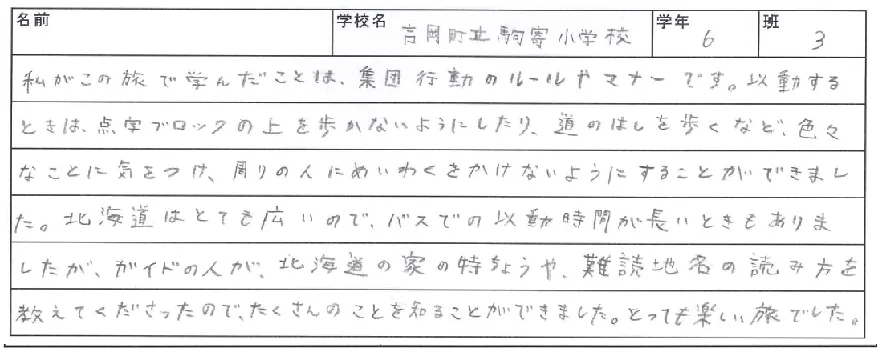 名前 学校名 吉岡町立駒寄小学校 学年 6 班 3
私がこの旅で学んだことは、集団行動のルールやマナーです。以動する
ときは、点字ブロックの上を歩かないようにしたり、道のはしを歩くなど、色々
なことに気をつけ、周りの人にめいわくをかけないようにすることができまし
た。北海道はとても広いので、バスでの以動時間が長いときもありま
したが、ガイドの人が、北海道の家の特ちょうや、難読地名の読み方を
教えてくださったので、たくさんのことを知ることができました。とっても楽しい旅でした。